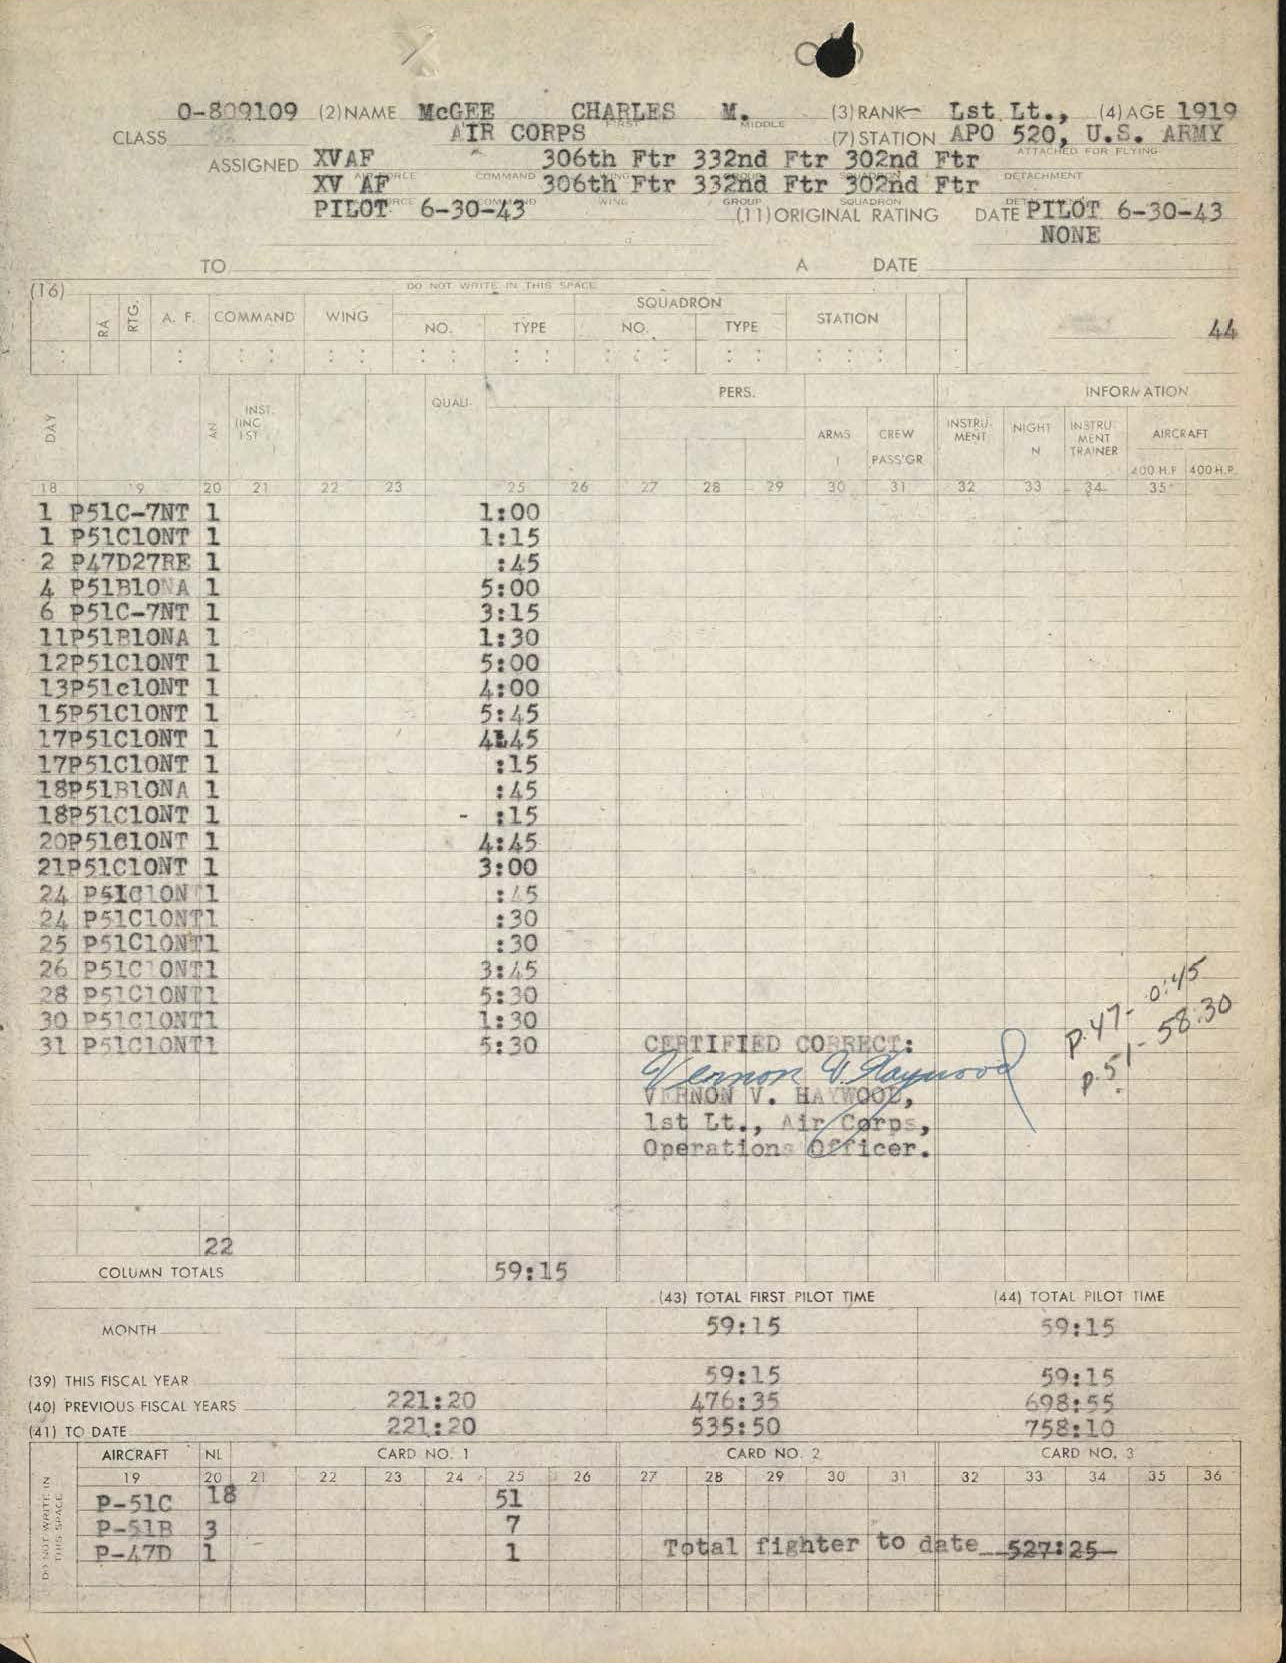 0-809109 (2) NAME McGEE CHARLES M. (3) RANK Lst Lt., (4) AGE 1919
FIRST MIDDLE
CLASS AIR CORPS (7) STATION APO 520, U.S. ARMY
ASSIGNED XVAF 306th Ftr 332nd Ftr 302nd Ftr ATTACHED FOR FLYING
COMMAND WING DETACHMENT
XV AF 306th Ftr 332nd Ftr 302nd Ftr
WING GROUP SQUADRON
PILOT 6-30-43 (11) ORIGINAL RATING DATE PILOT 6-30-43
NONE
TO A DATE
(16) DO NOT WRITE IN THIS SPACE
RA RTG. A. F. COMMAND WING SQUADRON STATION
NO. TYPE NO. TYPE
44
DAY AN INST. (INC 1ST QUALI- PERS. INFORMATION
ARMS 1 CREW PASS'GR INSTRU- MENT NIGHT N INSTRU MENT TRAINER AIRCRAFT
400 H.P 400 H.P.
18 19 20 21 22 23 25 26 27 28 29 30 31 32 33 34 35
1 P51C-7NT 1 1:00
1 P51C10NT 1 1:15
2 P47D27RE 1 :45
4 P51B10NA 1 5:00
6 P51C-7NT 1 3:15
11P51B10NA 1 1:30
12P51C10NT 1 5:00
13P51c10NT 1 4:00
15P51C10NT 1 5:45
17P51C10NT 1 4:45
17P51C10NT 1 :15
18P51B10NA 1 :45
18P51C10NT 1 - :15
20P51C10NT 1 4:45
21P51C10NT 1 3:00
24 P51C10N 1 :45
24 P51C10NT1 :30
25 P51C10NT1 :30
26 P51C10NT1 3:45
28 P51C10NT1 5:30
30 P51C10NT1 1:30
31 P51C10NT1 5:30
P.47- 0:45
P.51- 58:30
CERTIFIED CORRECT:
Vernon V. Haywood
VERNON V. HAYWOOD,
1st Lt., Air Corps,
Operations Officer.
22
COLUMN TOTALS 59:15
(43) TOTAL FIRST PILOT TIME (44) TOTAL PILOT TIME
MONTH 59:15 59:15
(39) THIS FISCAL YEAR 59:15 59:15
(40) PREVIOUS FISCAL YEARS 221:20 476:35 698:55
(41) TO DATE 221:20 535:50 758:10
AIRCRAFT NL CARD NO. 1 CARD NO. 2 CARD NO. 3
19 20 21 22 23 24 25 26 27 28 29 30 31 32 33 34 35 36
DO NOT WRITE IN THIS SPACE
P-51C 18 51
P-51B 3 7
P-47D 1 1 Total fighter to date 527:25